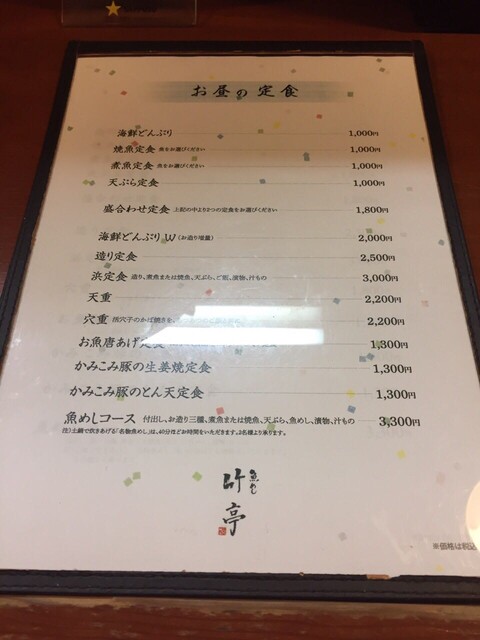 お昼の定食
海鮮どんぶり 1,000円
焼魚定食 魚をお選びください 1,000円
煮魚定食 魚をお選びください 1,000円
天ぷら定食 1,000円
盛合わせ定食 上記の中より2つの定食をお選びください 1,800円
海鮮どんぶりW (お造り増量) 2,000円
造り定食 2,500円
浜定食 造り、煮魚または焼魚、天ぷら、ご飯、漬物、汁もの 3,000円
天重 2,200円
穴重 活穴子のかば焼きを、 2,200円
お魚唐あげ定食 1,300円
かみこみ豚の生姜焼定食 1,300円
かみこみ豚のとん天定食 1,300円
魚めしコース 付出し、お造り三種、煮魚または焼魚、天ぷら、魚めし、漬物、汁もの 3,300円
注)土鍋で炊きあげる「名物魚めし」は、40分ほどお時間をいただきます。2名様より承ります。
魚めし
竹亭
※価格は税込